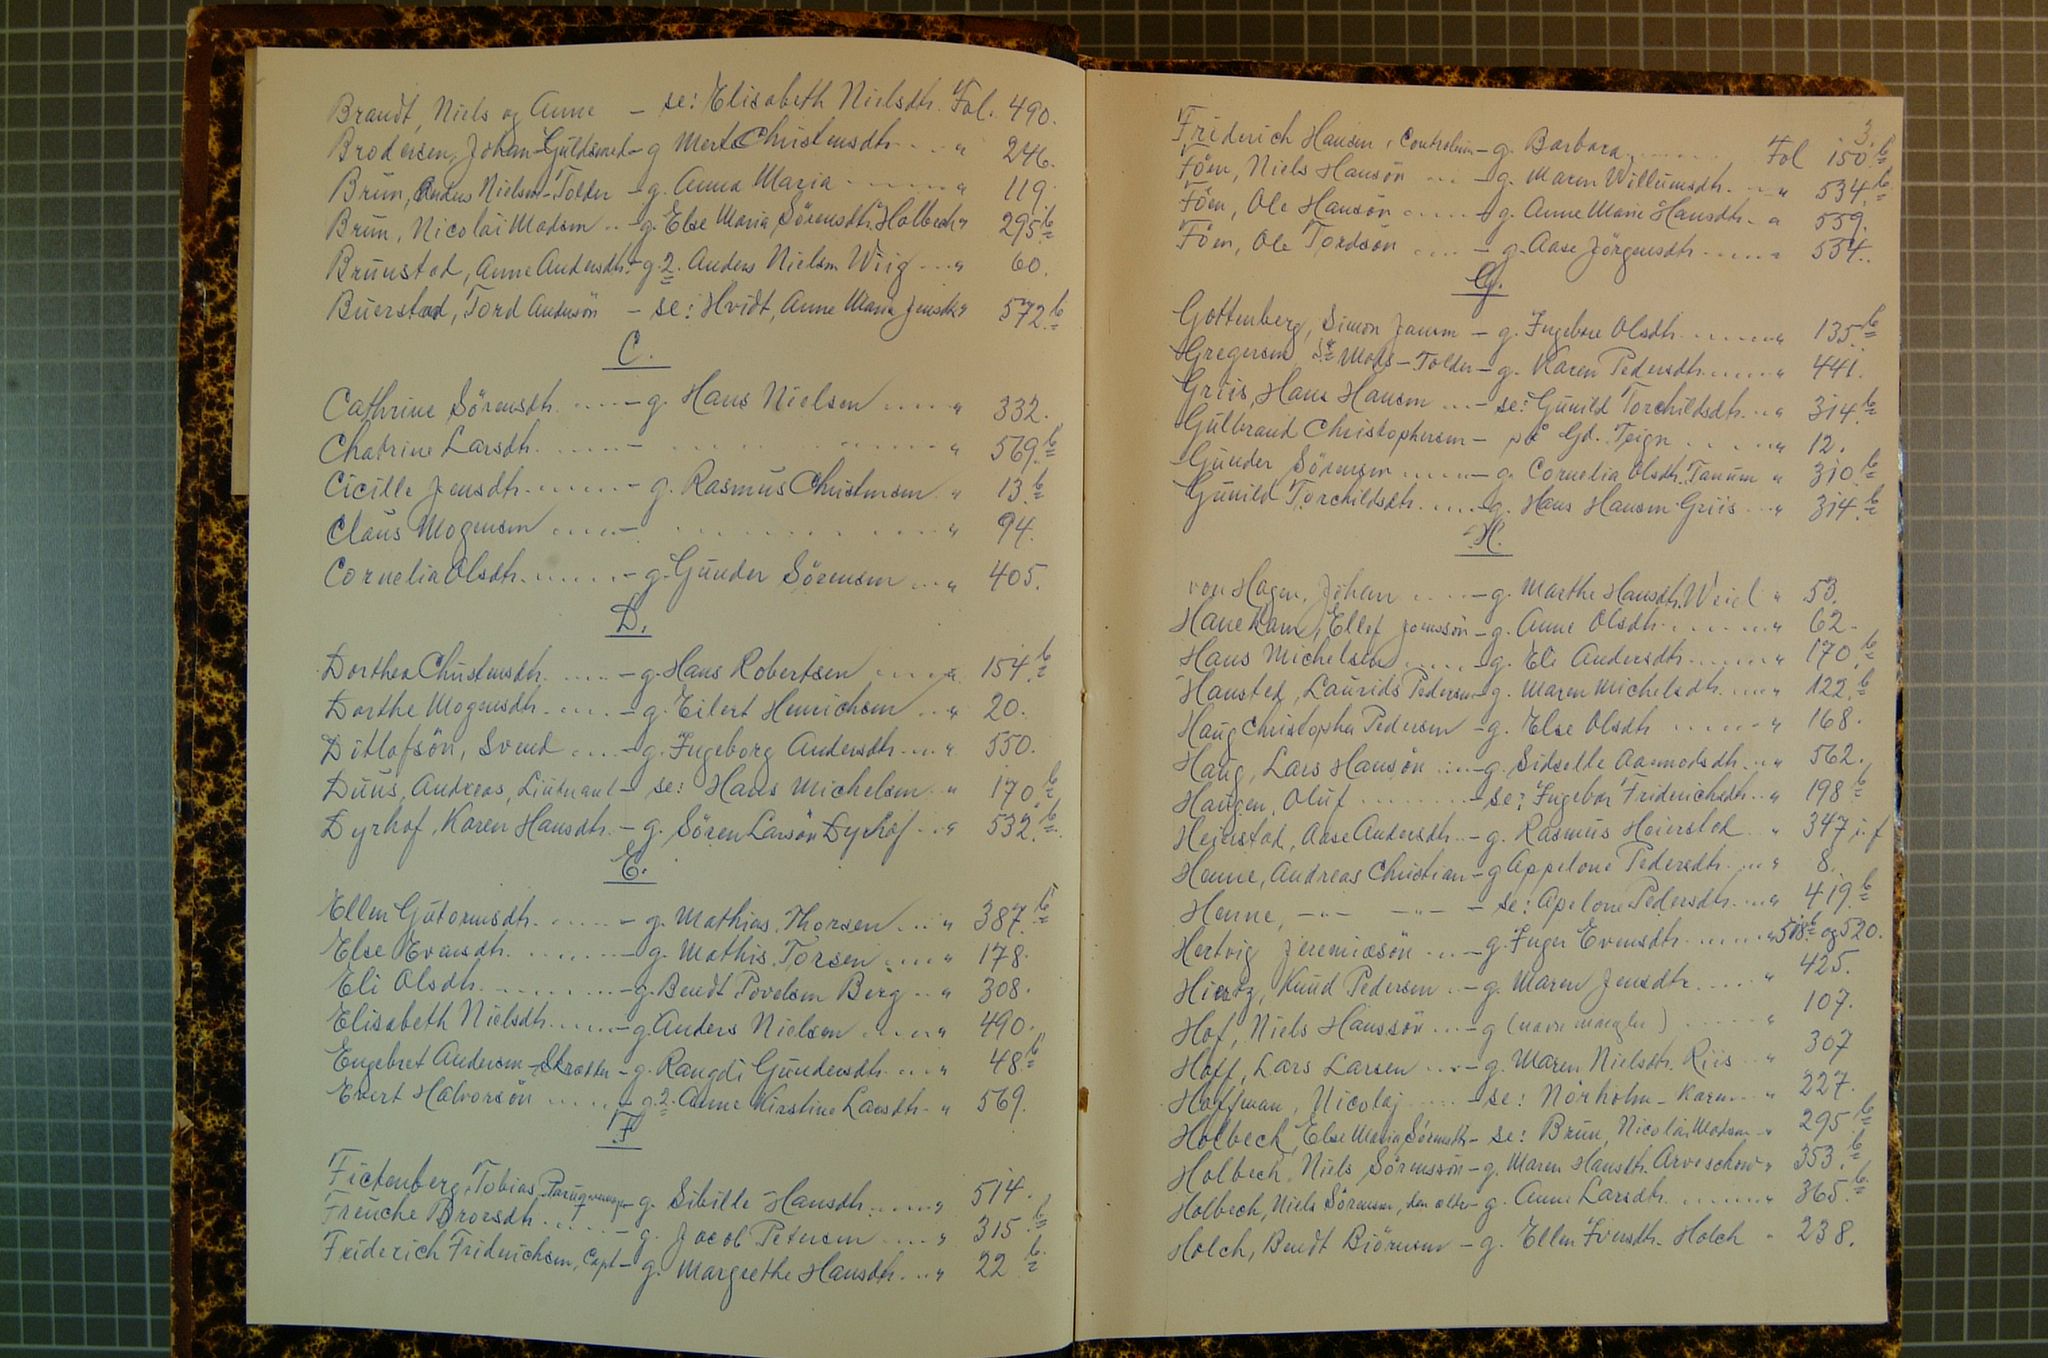 Brandt, Niels og Anne - se: Elisabeth Nielsdtr. Fol. 490.
Brodersen, Johan - Guldsmed - g Mertc Christensdtr. . . . " 246.
Brun, Anders Nielsen - Tolder - g. Anna Maria . . . . . " 119.
Brun, Nicolai Madsen . . - g. Else Maria Sörensdtr. Holbech " 295 b
Brunstad, Anne Andersdtr. - g. 2. Anders Nielsen Wiig . . . " 60.
Buerstad, Tord Andersön - se: Hvidt, Anne Maria Jensdtr " 572. b
C.
Cathrine Sörensdtr. . . . . - g. Hans Nielsen . . . . . " 332.
Chatrine Larsdtr. . . . . . - . . . . . . . . " 569. b
Cicille Jensdtr. . . . . . - g. Rasmus Christensen . " 13. b
Claus Mogensen . . . . - . . . . . . . . " 94.
Cornelia Olsdtr. . . . . . - g. Gunder Sörensen . . . " 405.
D.
Dorthea Christensdtr. . . . . - g. Hans Robertsen . . . . " 154. b
Dorthe Mogensdtr. . . . . - g. Eilert Henrichsen . . . " 20.
Ditlofsön, Svend . . . . - g. Ingeborg Andersdtr. . . . " 550.
Duus, Andreas, Liutnant - se: Hans Michelsen . . " 170. b
Dyrhof, Karen Hansdtr. - g. Sören Larsön Dyrhof . . . " 532. b
E.
Ellen Gutormsdtr. . . . . . - g. Mathias Thorsen . . . " 387. b
Else Evensdtr. . . . . . . - g. Mathis Torsen . . . . " 178.
Eli Olsdtr. . . . . . . . - g. Bendt Povelsen Berg . . " 308.
Elisabeth Nielsdtr. . . . . . - g. Anders Nielsen . . . . . " 490.
Engebret Andersen - Skrædder - g. Rangdi Gundersdtr. . . . " 48 b
Evert Halvorsön . . . . . - g. 2. Anne Kirstine Larsdtr. . " 569.
F.
Fictenberg, Tobias, - g. Sibille Hansdtr. . . . . " 514.
Freuche Brorsdtr. . . . . . - g. Jacob Petersen . . . . " 315. b
Friderich Friderichsen, Capt - g. Margrethe Hansdtr. . . . " 22 b
3.
Friderich Hansen, Controlleur - g. Barbara . . . . . . Fol 150. b
Föen, Niels Hansön . . . - g. Maren Willumsdtr. . . . " 534. b
Föen, Ole Hansön . . . . . - g. Anne Marie Hansdtr. . " 559.
Föen, Ole Tordsön . . . . - g. Aase Jörgensdtr. . . . . . " 554.
G.
Gottenberg, Simon Jansen - g. Ingebore Olsdtr. . . . . . " 135. b
Gregersen, Sr. Mads - Tolder - g. Karen Pedersdtr. . . . . " 441.
Griis, Hans Hansen . . . - se: Gunild Torchildsdtr. . . " 314. b
Gulbrand Christophersen - på Gd. Teign . . . . . " 12.
Gunder Sörensen . . . . . - g. Cornelia Olsdtr. Tanum " 310. b
Gunild Torchildsdtr. . . . . - g. Hans Hansen Griis . . . " 314. b
H.
von Hagen, Johan . . . . - g. Marthe Hansdtr. Weid " 53.
Hanekam, Ellef Joenssön - g. Anne Olsdtr. . . . . . " 62.
Hans Michelsen . . . . . - g. Eli Andersdtr. . . . . . " 170. b
Hansted, Laurids Pedersen - g. Maren Michelsdtr. . . . . " 122. b
Haug Christopher Pedersen - g. Else Olsdtr. . . . . . . " 168.
Haug, Lars Hansön . . . - g. Sidselle Aamodsdtr. . . " 562.
Haugen, Oluf . . . . . . . - se: Ingebor Friderichsdtr. . " 198 b
Heierstad, Aase Andersdtr. . - g. Rasmus Heiersted . . " 347 i. f
Henne, Andreas Christian - g Appelone Pedersdtr. . . . " 8.
Henne, - " - - " - - se: Apelone Pedersdtr. . . . " 419. b
Hertvig Jeremiæsön . . . - g. Inger Evensdtr. . . . . . " 518 b og 520.
Hiertz, Knud Pedersen . . - g. Maren Jensdtr. . . . . " 425.
Hof, Niels Hanssön . . . - g (navn mangler) . . . . . " 107.
Hoff, Lars Larsen . . . - g. Maren Nielsdtr. Riis . . " 307
Hoffman, Nicolaj . . . . . - se: Nörholm - Karen . . " 227.
Holbeck, Else Maria Sörensdtr. - se: Brun, Nicolai Madsen . " 295. b
Holbech, Niels Sörenssön - g. Maren Hansdtr. Arveschow " 353. b
Holbech, Niels Sörensen, den eldre - g. Anne Larsdtr. . . . . . . " 365. b
Holch, Bendt Biörnsen - g. Ellen Ivensdtr. Holch " 238.